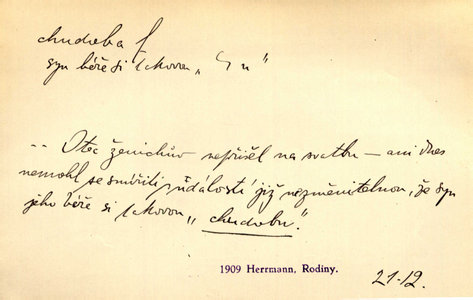 chudoba f
syn béře si takovou „ G u"
-- Otec ženichův nepřišel na svatbu – ani dnes
nemohl se smířiti s událostí již nezměnitelnou, že syn
jeho béře si takovou „chudobu".
1909 Herrmann, Rodiny.
21-12.